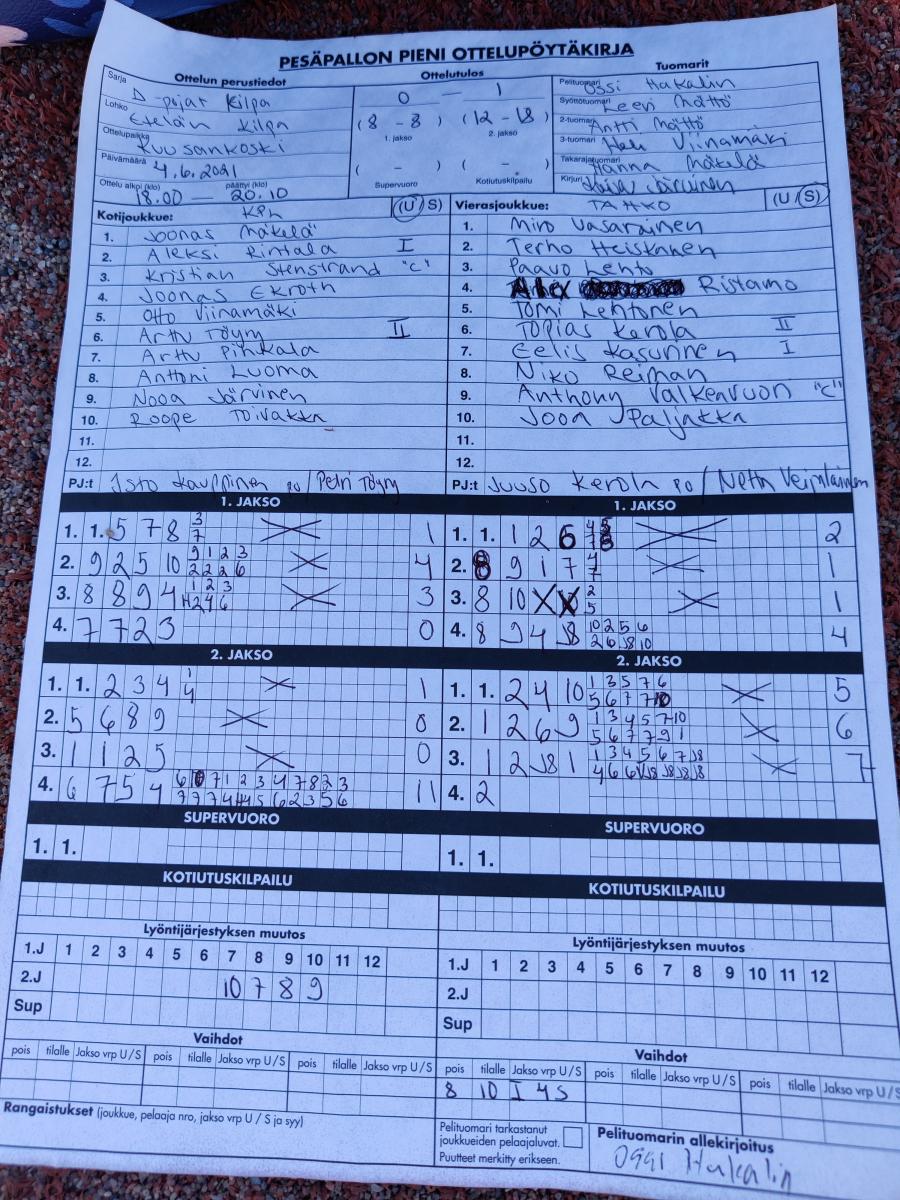 PESÄPALLON PIENI OTTELUPÖYTÄKIRJA
Sarja Ottelun perustiedot Ottelutulos Tuomarit
D-pojat Kilpa 0 — 1 Pelituomari Ossi Hakalin
Lohko Etelän Kilpa (8 - 8) (12 - 18) Syöttötuomari Leevi Mättö
1. jakso 2. jakso 2-tuomari Antti Mättö
Ottelupaikka Kuusankoski 3-tuomari Viinamäki
Päivämäärä 4.6.2021 ( - ) ( - ) Takarajatuomari Hanna Mäkelä
Ottelu alkoi (klo) päättyi (klo) Supervuoro Kotiutuskilpailu Kirjuri Järvinen
18.00 — 20.10
Kotijoukkue: KPh (U/S) Vierasjoukkue: TAHKO (U/S)
1. Joonas Mäkelä 1. Miro Vasarainen
2. Aleksi Rintala I 2. Terho Heiskanen
3. Kristian Stenstrand "C" 3. Paavo Lehto
4. Joonas Ekroth 4. Ristamo
5. Otto Viinamäki 5. Tomi Lehtonen
6. Arttu Töyry II 6. Topias Kerola II
7. Arttu Pihkala 7. Eelis Kasurinen I
8. Anttoni Luoma 8. Niko Reiman
9. Nooa Järvinen 9. Anthony Valkeavuori "C"
10. Roope Toivakka 10. Joona Paljakka
11. 11.
12. 12.
PJ:t Isto Kauppinen PO / Petri Töyry PJ:t Juuso Kerola PO /
1. JAKSO 1. JAKSO
1. 1. 5 7 8 3 1 1. 1. 1 2 6 2
7
2. 9 2 5 10 9 1 2 3 4 2. 8 9 1 7 4 1
2 2 2 6 7
3. 8 8 9 4 1 2 3 3 3. 8 10 X X 2 1
4 2 4 6 5
4. 7 7 2 3 0 4. 8 9 4 J8 10 2 5 6 4
2 6 J8 10
2. JAKSO 2. JAKSO
1. 1. 2 3 4 1 1 1. 1. 2 4 10 1 3 5 7 6 5
4 5 6 7 7 10
2. 5 6 8 9 0 2. 1 2 6 9 1 3 4 5 7 10 6
5 6 7 7 9 1
3. 1 1 2 5 0 3. 1 2 J8 1 1 3 4 5 6 7 J8 7
4. 6 7 5 4 11 4. 2
SUPERVUORO SUPERVUORO
1. 1. 1. 1.
KOTIUTUSKILPAILU KOTIUTUSKILPAILU
Lyöntijärjestyksen muutos Lyöntijärjestyksen muutos
1.J 1 2 3 4 5 6 7 8 9 10 11 12 1.J 1 2 3 4 5 6 7 8 9 10 11 12
2.J 10 7 8 9 2.J
Sup Sup
Vaihdot Vaihdot
pois tilalle Jakso vrp U/S pois tilalle Jakso vrp U/S pois tilalle Jakso vrp U/S pois tilalle Jakso vrp U/S pois tilalle Jakso vrp U/S pois tilalle Jakso vrp U/S
8 10 I 4S
Rangaistukset (joukkue, pelaaja nro, jakso vrp U / S ja syy)
Pelituomari tarkastanut joukkueiden pelaajaluvat.
Puutteet merkitty erikseen.
Pelituomarin allekirjoitus
Ossi Hakalin